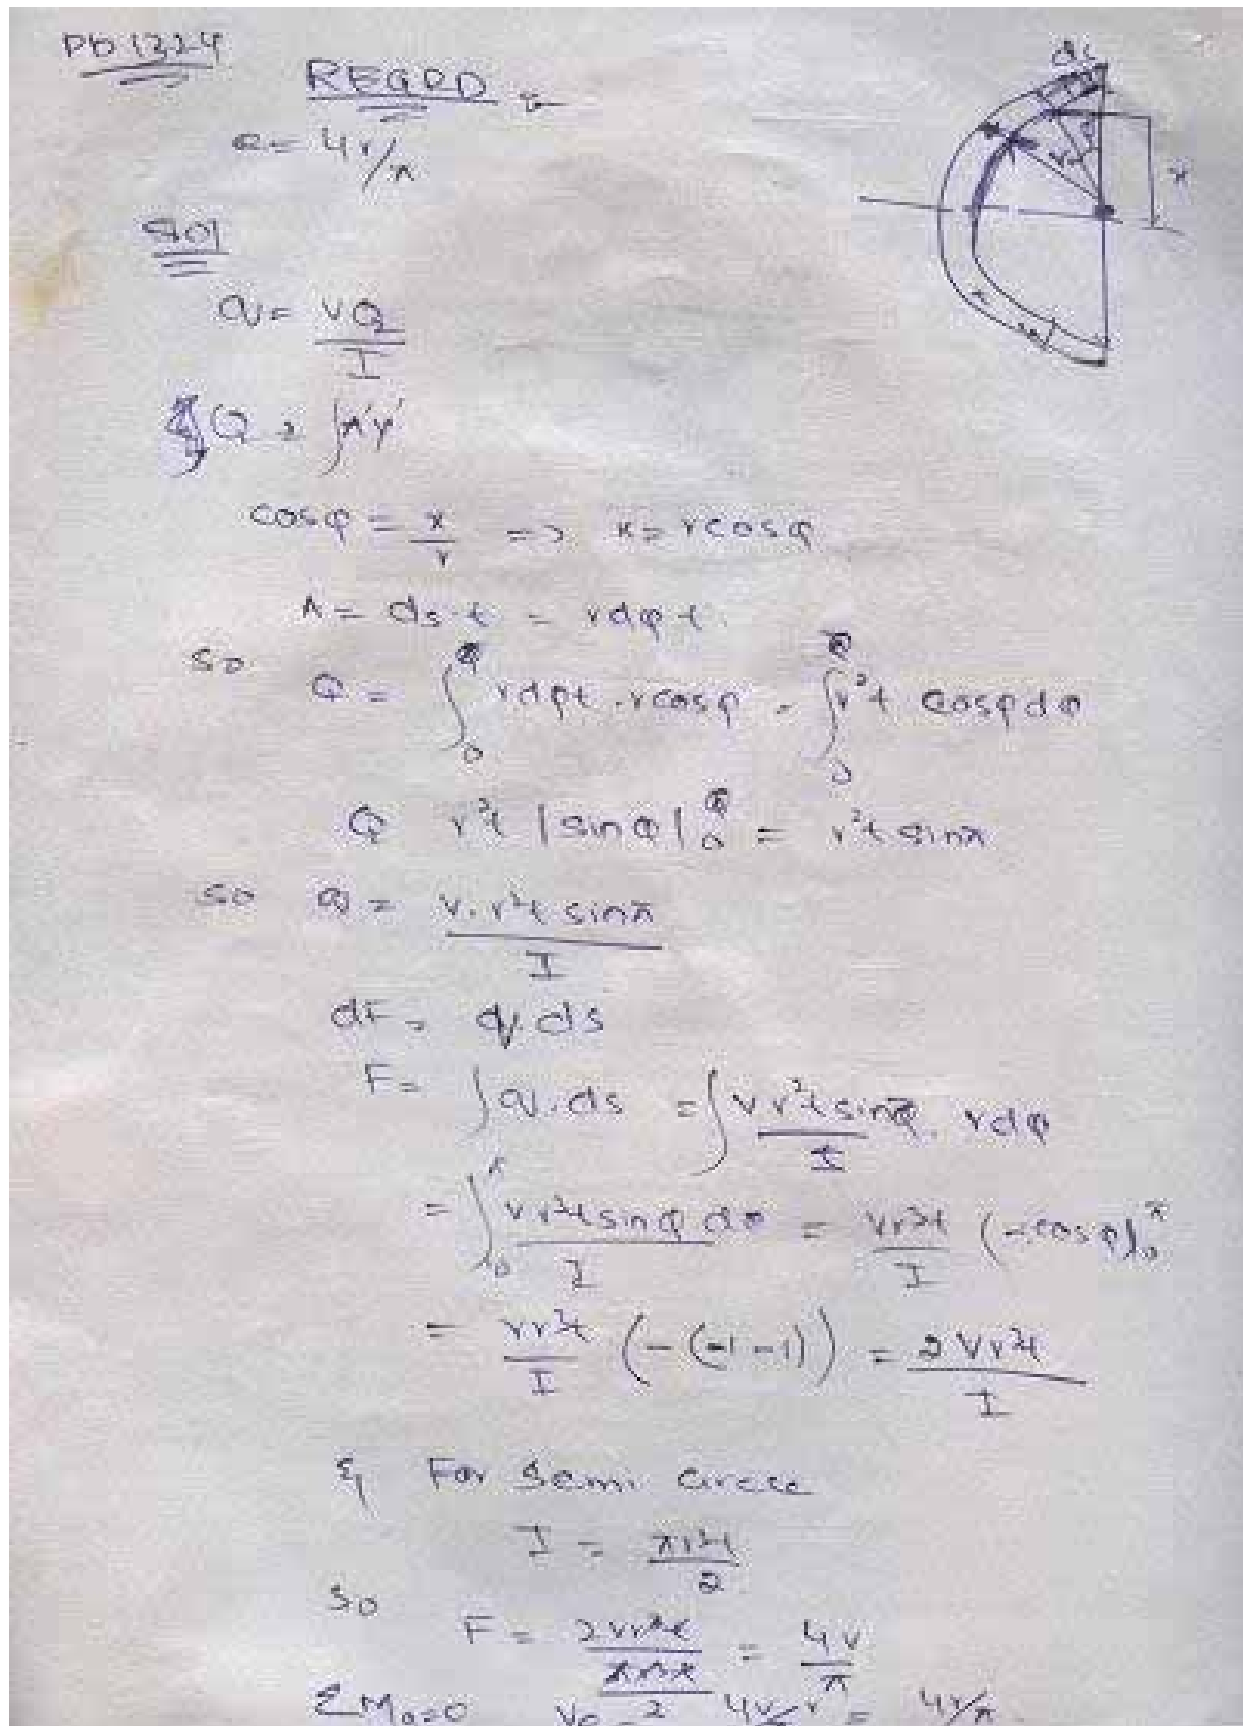 REQRD
e = 4r/π
Sol
q = VQ/I
cosφ = x/r => x = rcosφ
A = ds.t = rdφt
so Q = ∫₀^φ rdφt . rcosφ = ∫₀^φ r²t cosφdφ
Q r²t |sinφ|₀^φ = r²t sinπ
so Q = V.r²t sinπ/I
dF = q.ds
F = ∫q.ds = ∫Vr²t sinφ/I . rdφ
= ∫₀^π Vr³t sinφ dφ/I = Vr³t/I (-cosφ)₀^π
= Vr³t/I (-(-1-1)) = 2Vr³t/I
For Semi Circle
I = πr³t/2
So F = 2Vr³t/(πr³t/2) = 4V/π
ΣMo=0 Ve 4V/π r = 4r/π